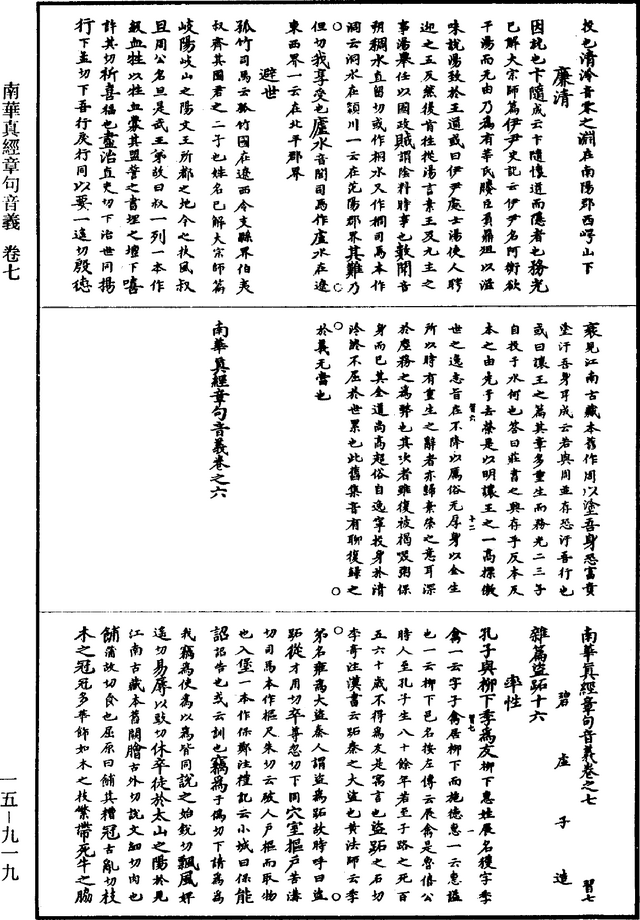 投也清泠音零之淵在南陽郡西崿山下
廉清
因說也卞隨成云卞隨懷道而隱者也務光
已解大宗師篇伊尹史記云伊尹名阿衡欲
干湯而无由乃為有莘氏媵臣負鼎俎以滋
味說湯致於王道或曰伊尹處士湯使人聘
迎之五反然後肯往從湯言素王及九主之
事湯舉任以國政賊謂陰料時事也數聞音
朔稠水直留切或作桐水又作櫚司馬本作
洞云洞水在潁川一云在范陽郡界其難乃
但切我享受也廬水音閭司馬作盧水在遼
東西界一云在北平郡界
避世
孤竹司馬云孤竹國在遼西令支縣界伯夷
叔齊其國君之二子也姓名已解大宗師篇
岐陽岐山之陽文王所都之地今之扶風叔
旦周公名旦是武王弟故曰叔一列一本作
級血牲以牲血塗其盟誓之書埋之壇下嘻
許其切祈喜福也盡治直吏切下治世同揚
行下孟切下吾行戾行同以要一遙切殷德
衰見江南古藏本舊作周以塗吾身恐富貴
塗汙吾身耳成云若與周並存恐汙吾行也
或曰讓王之篇其章多重生而務光二三子
自投于水何也答曰莊書之興存乎反本反
本之由先于去榮是以明讓王之一高標傲
世之逸志旨在不降以厲俗无厚身以全生
所以時有重生之辭者亦歸棄榮之意耳深
於塵務之為弊也其次者雖復被褐啜粥保
身而已其全道尚高超俗自逸寧投身於清
泠終不屈於世累也此舊集音有聊復錄之
於義无當也
南華真經章句音義卷之六
南華真經章句音義卷之七
碧虛子造
雜篇盜跖十六
率性
孔子與柳下季為友柳下惠姓展名獲字季
禽一云字子禽居柳下而施德惠一云惠謚
也一云柳下邑名按左傳云展禽是魯僖公
時人至孔子生八十餘年若至子路之死百
五六十歲不得為友是寓言也盜跖之石切
李奇注漢書云跖秦之大盜也黃法師云季
弟名雍為大盜秦人謂盜為跖故時呼曰盜
跖從才用切卒尊忽切下同穴室樞戶苦溝
切司馬本作樞尺朱切云破人戶樞而取物
也入堡一本作保鄭注禮記云小城曰保能
詔詔告也或云訓也竊為于偽切下請為為
我竊為使為以為皆同說之始銳切飄風妤
遙切易辱以豉切休卒徒於太山之陽於見
江南古藏本舊闕膾古外切說文細切肉也
餔蒲故切食也屈原曰餔其糟冠古亂切枝
木之冠冠多華飾如木之枝繁帶死牛之脇
南華真經章句音義 卷七
一五-九一九
習六
十二
習七
一
習七